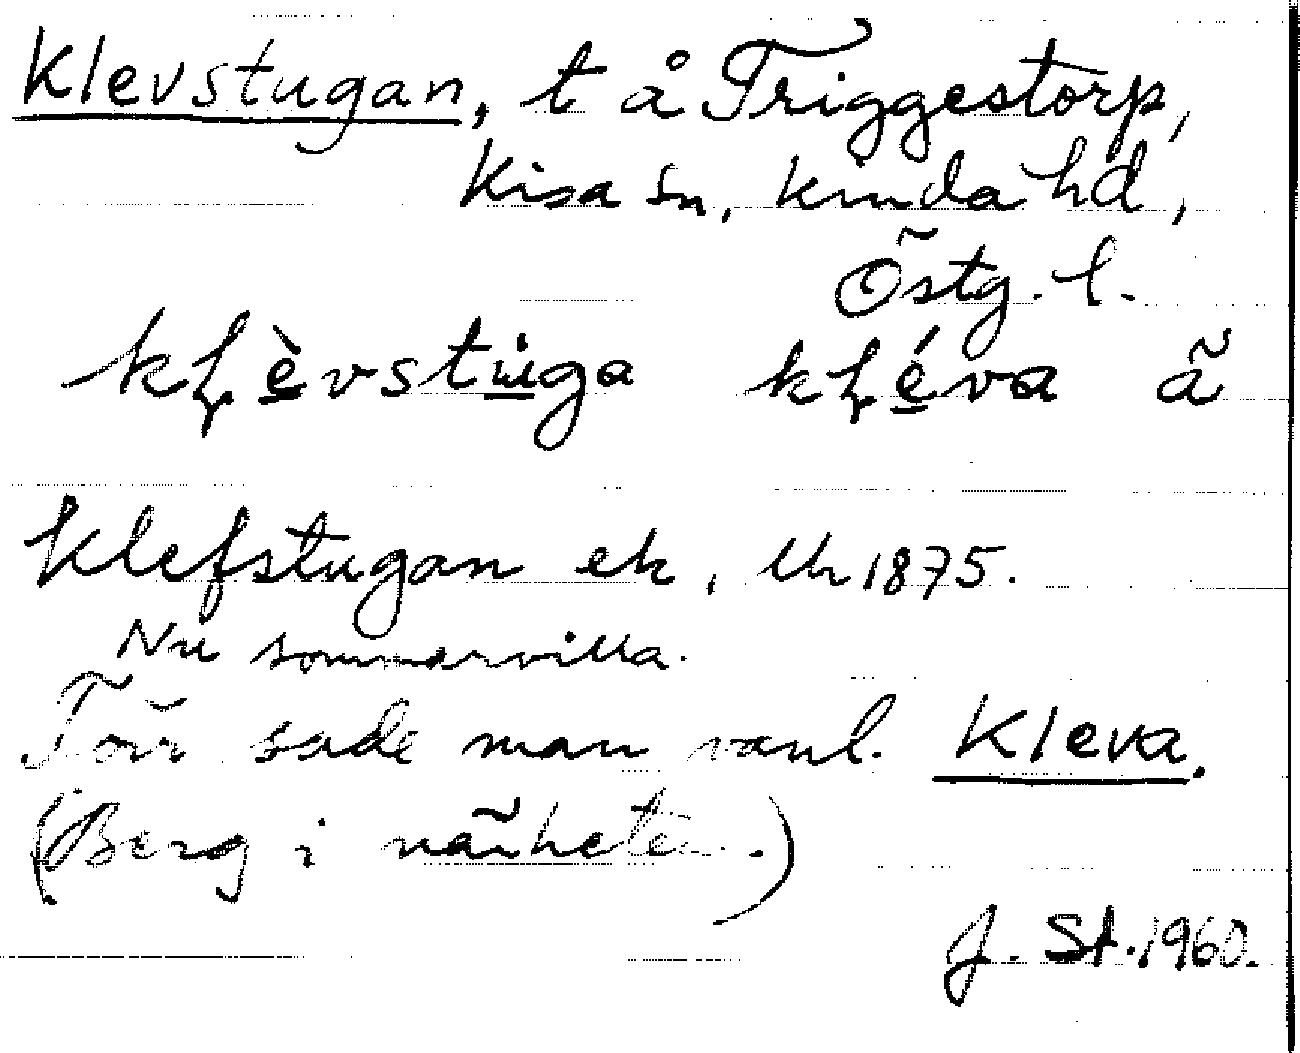 Klevstugan, t å Triggestorp,
Kisa sn, Kinda hd,
Östg. l.
klèvstùga kléva ã
Klefstugan ek, Uh 1875.
Nu sommarvilla.
Förr sade man vanl. Kleva.
(Berg i närheten.)
J. St. 1960.